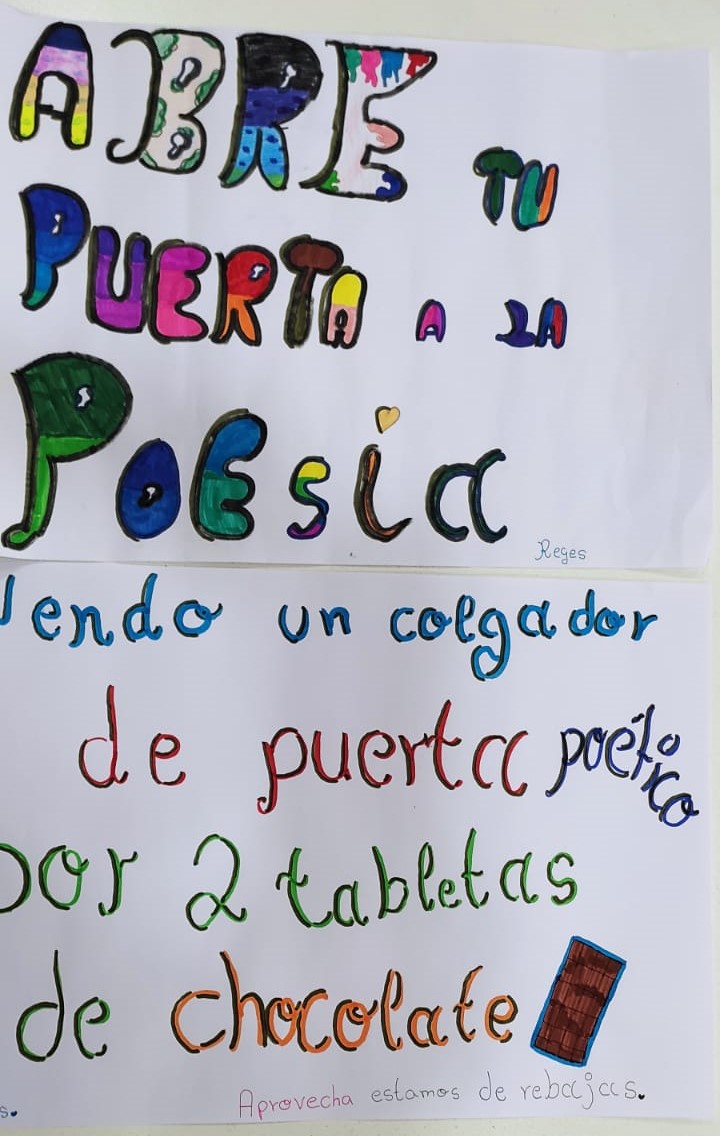 ABRE TU
PUERTA A LA
POESIA
Reyes
Vendo un colgador
de puerta poético
por 2 tabletas
de chocolate
Aprovecha estamos de rebajas.